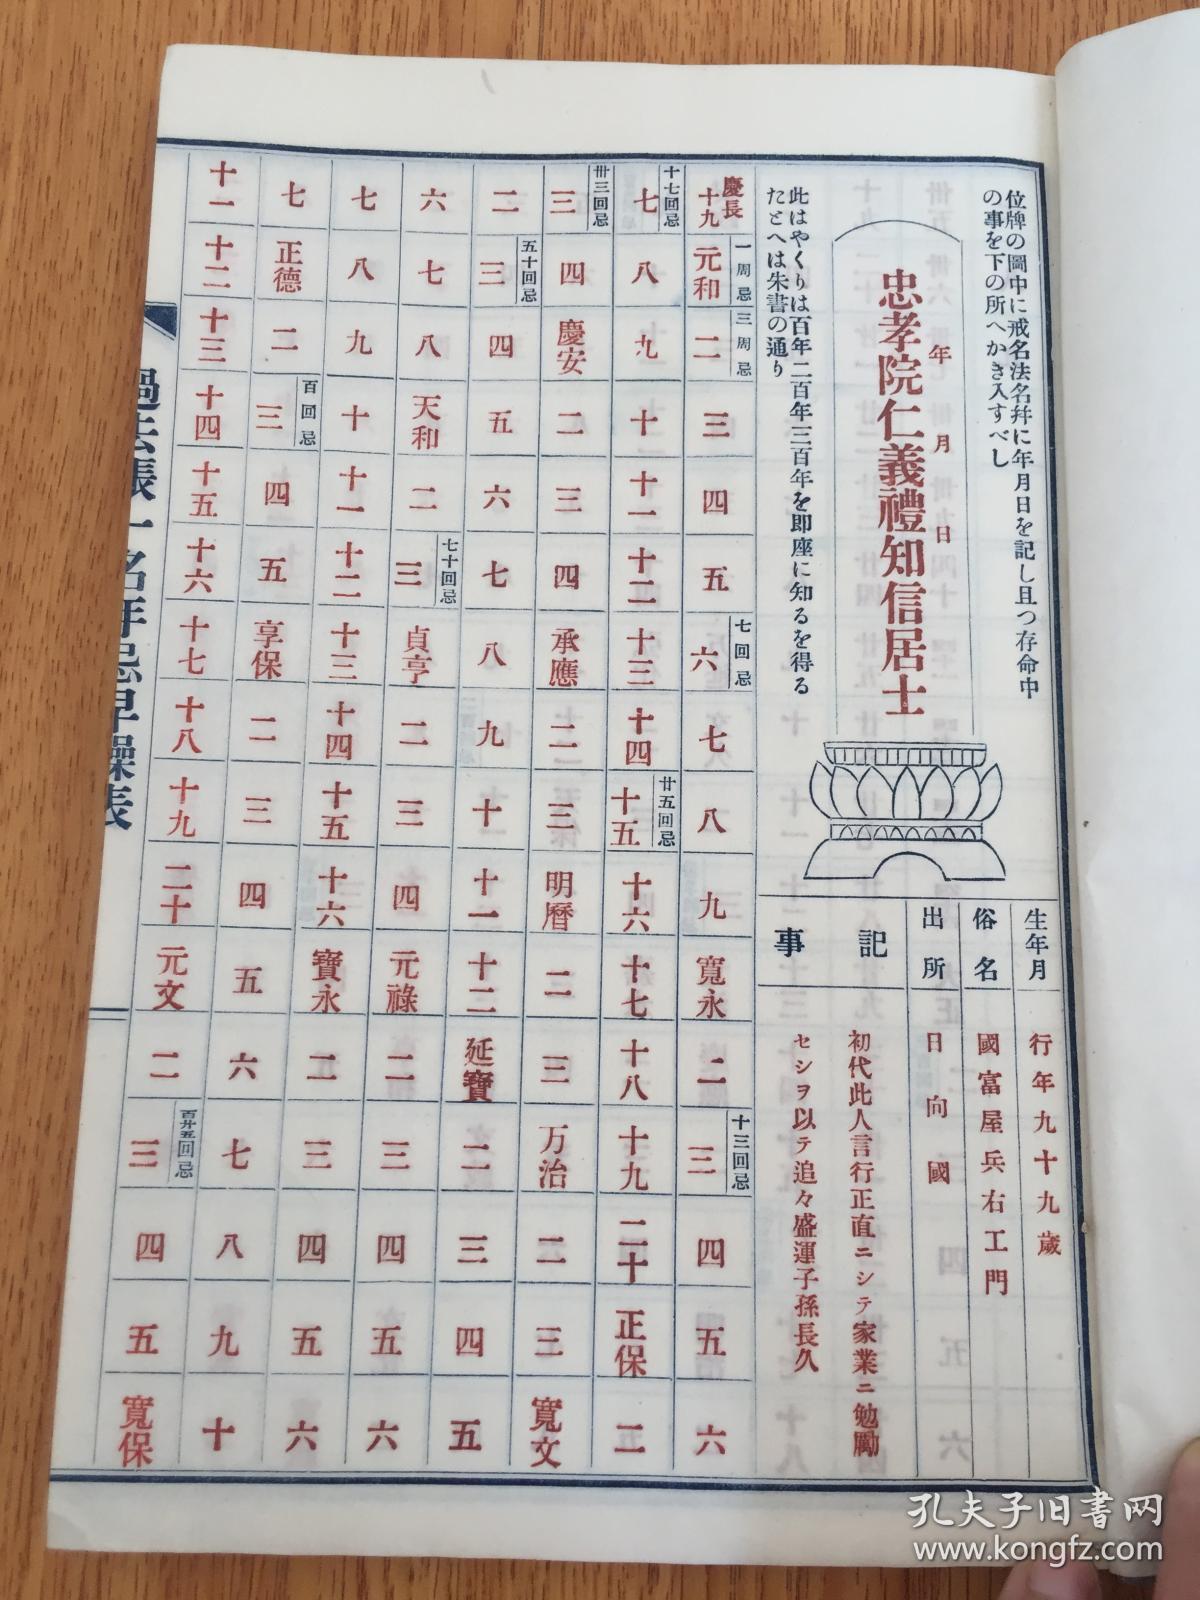 位牌の圖中に戒名法名幷に年月日を記し且つ存命中
の事を下の所へかき入すべし
年月日
忠孝院仁義禮知信居士
此はやくりは百年二百年三百年を即座に知るを得る
たとへは朱書の通り
生年月
行年九十九歲
俗名
國富屋兵右工門
出所
日向國
記事
初代此人言行正直ニシテ家業ニ勉勵
セシヲ以テ追々盛運子孫長久
慶長十九
元和 一周忌
二 三周忌
三
四
五
六 七回忌
七
八
九
寬永
二
三 十三回忌
四
五
六
七 十七回忌
八
九
十
十一
十二
十三
十四
十五 廿五回忌
十六
十七
十八
十九
二十
正保
二
三 卅三回忌
四
慶安
二
三
四
承應
二
三
明曆
二
三
万治
二
三
寬文
二
三 五十回忌
四
五
六
七
八
九
十
十一
十二
延寶
二
三
四
五
六
七
八
天和
二
三 七十回忌
貞亨
二
三
四
元祿
二
三
四
五
六
七
八
九
十
十一
十二
十三
十四
十五
十六
寶永
二
三
四
五
六
七
正德
二
三 百回忌
四
五
享保
二
三
四
五
六
七
八
九
十
十一
十二
十三
十四
十五
十六
十七
十八
十九
二十
元文
二
三 百廿五回忌
四
五
寬保
過去帳一名年忌早操表
孔夫子旧书网
www.kongfz.com